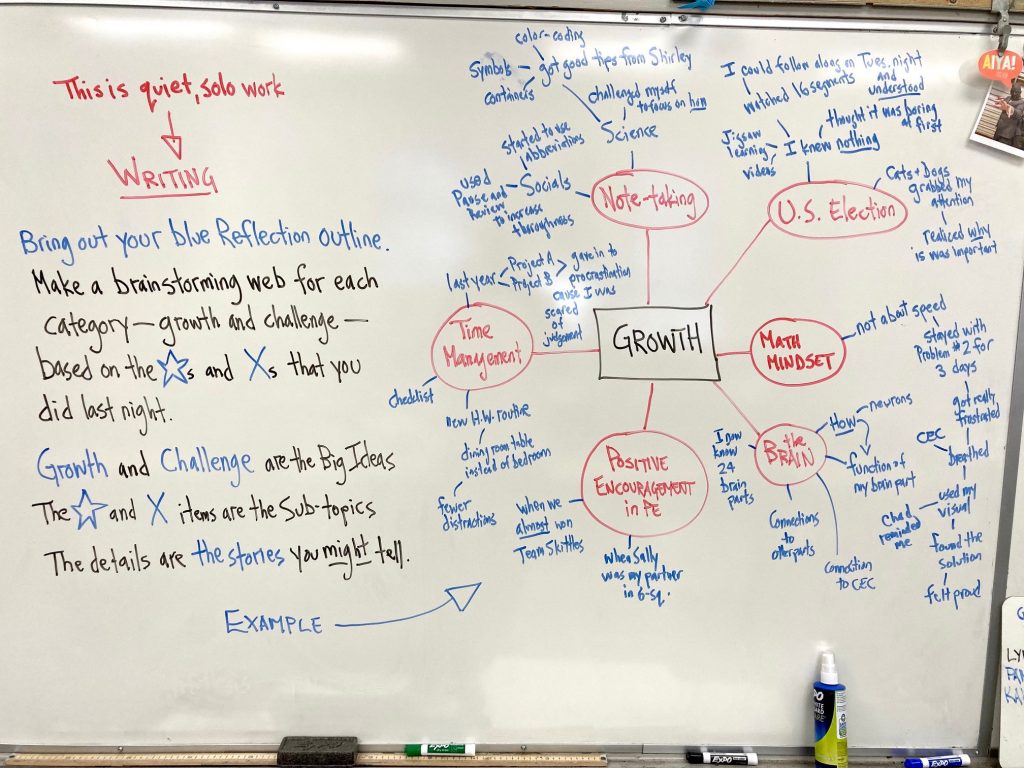 This is quiet, solo work
WRITING
Bring out your blue Reflection outline.
Make a brainstorming web for each
category — growth and challenge —
based on the ☆s and Xs that you
did last night.
Growth and Challenge are the Big Ideas
The ☆ and X items are the Sub-topics
The details are the stories you might tell.
EXAMPLE
GROWTH
Note-taking
Science
got good tips from Shirley
color-coding
Symbols
containers
challenged myself
to focus on how
Socials
started to use
abbreviations
used
Pause and
Review
to increase
thoroughness
U.S. Election
I knew nothing
I could follow along on Tues. night
and
understood
watched 16 segments
thought it was boring
at first
Jigsaw
learning
videos
Cats + Dogs
grabbed my
attention
realized why
is was important
MATH
MINDSET
not about speed
stayed with
Problem #2 for
3 days
got really
frustrated
CEC
breathed
used my
visual
Chad
reminded
me
found the
solution
felt proud
the
BRAIN
How
neurons
function of
my brain part
I now
know 24
brain
parts
Connections
to
other parts
Connection
to CEC
POSITIVE
ENCOURAGEMENT
in PE
when we
almost won
Team Skittles
when Sally
was my partner
in 6-sq.
Time
Management
last year
Project A
Project B
gave in to
procrastination
cause I was
scared
of
judgement
checklist
new H.W. routine
dining room table
instead of bedroom
fewer
distractions
AIYA!
EXPO
EXPO
EXPO